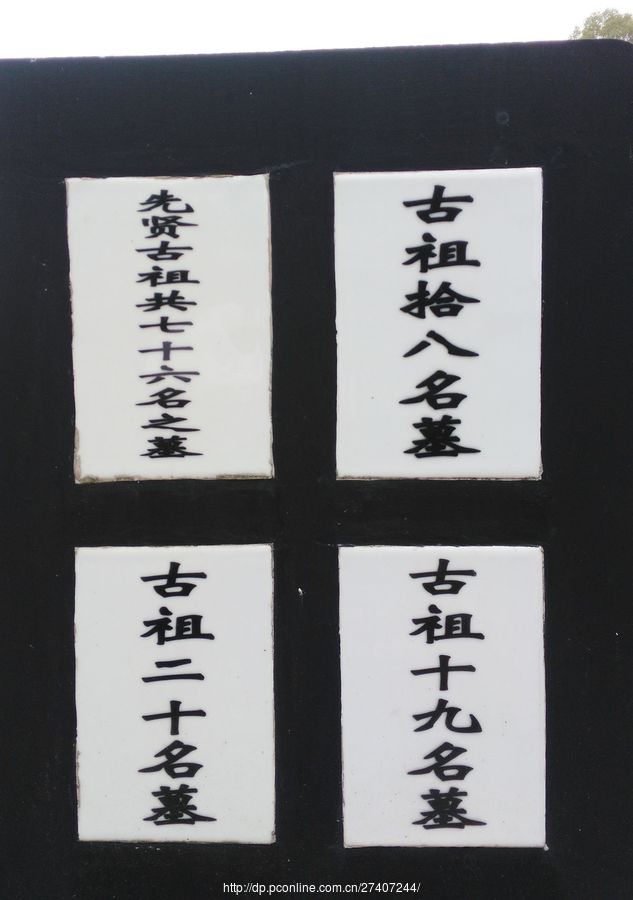 先贤古祖共七十六名之墓
古祖拾八名墓
古祖二十名墓
古祖十九名墓
http://dp.pconline.com.cn/27407244/